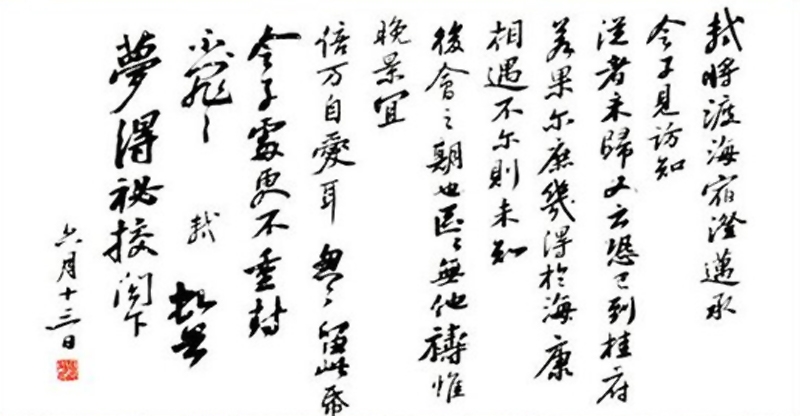 軾將渡海宿澄邁承
令子見訪知
從者未歸又云恐已到桂府
若果尔庶幾得於海康
相遇不尔則未知
後會之期也區〻無他禱惟
晚景宜
倍万自愛耳 匆〻留此帋
令子處更不重封
不罪〻 軾 頓首
夢得祕校閣下
六月十三日